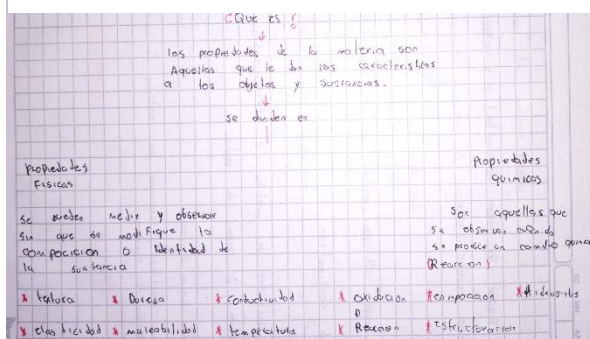 ¿Que es?
las propiedades de la materia son
Aquellas que le dan las caracteristicas
a los objetos y sustancias.
se dividen en
Propiedades
Fisicas
se pueden medir y observar
sin que se modifique la
composicion o identidad de
la sustancia
Propiedades
quimicas
Son aquellas que
se observan cuando
se produce un cambio
(Reaccion)
* textura * Dureza * conductividad
* elasticidad * maleabilidad * temperatura
* oxidacion * composicion * Hidrosilis
o
* Reaccion